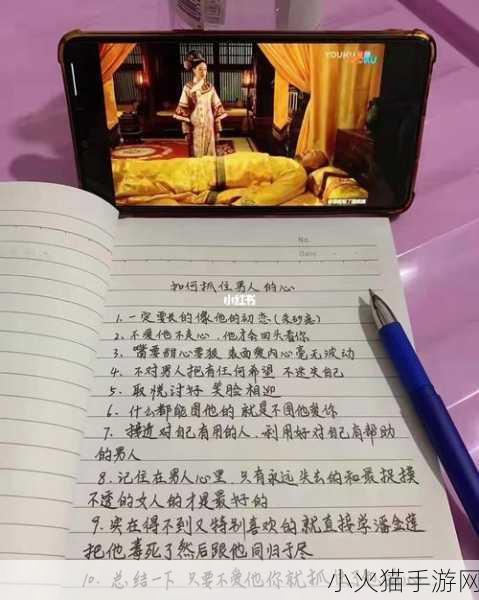 YOUKU
No.
Date
如何抓住男人的心
小红书
1. 一定要长的像他的初恋(朱砂痣)
2. 不爱他不走心,他才会回头看你
3. 嘴要甜心要狠 表面爱内心毫无波动
4. 不对男人抱有任何希望 不迷失自己
5. 取悦讨好 笑脸相迎
6. 什么都能图他的 就是不图他爱你
7. 接近对自己有用的人,利用好对自己有帮助
的男人
8. 记住在男人心里,只有永远失去的和最捉摸
不透的女人的才是最好的
9. 实在得不到又特别喜欢的就直接学潘金莲
把他毒死了然后跟他同归于尽
10. 总结一下 只要不爱他你就抓住了
小火猫手游网